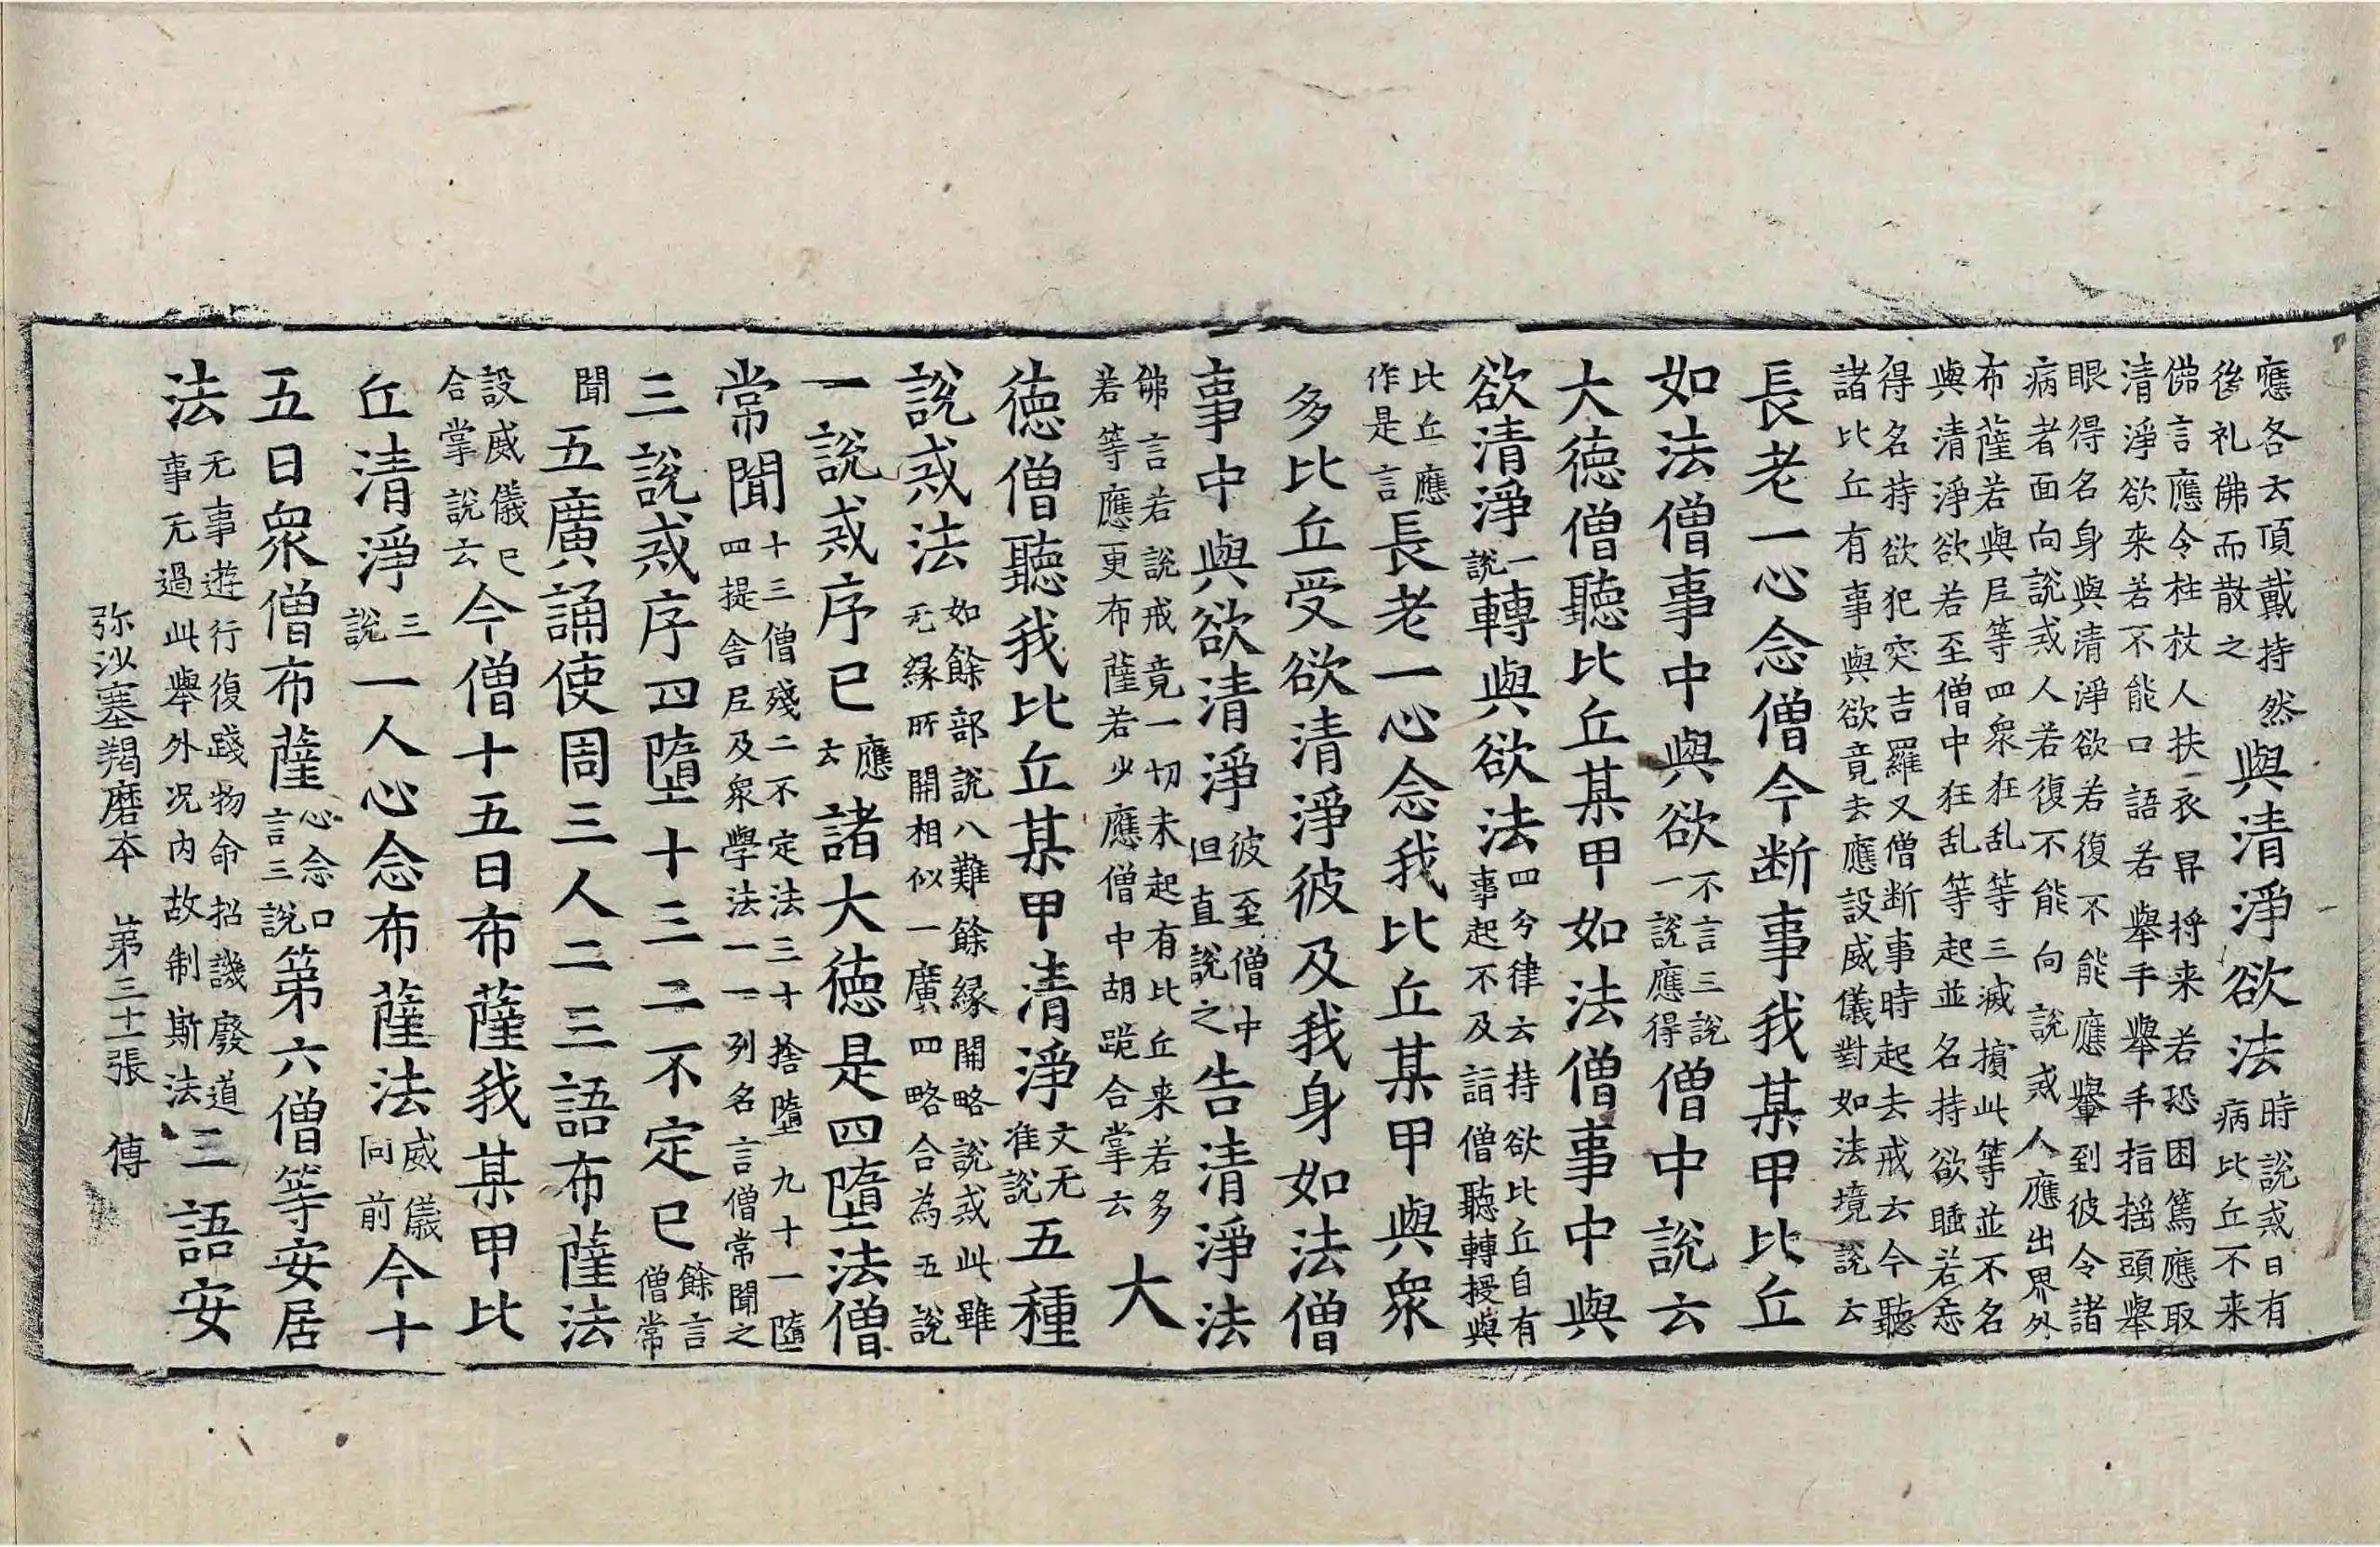 應各云頂戴持然
後礼佛而散之
與清淨欲法
時說戒日有
病比丘不來
佛言應令柱杖人扶衣舁將来若恐困篤應取
清淨欲来若不能口語若舉手舉手指揺頭舉
眼得名身與清淨欲若復不能應轝到彼令諸
病者面向說戒人若復不能向說戒人應出界外
布薩若與尼等四衆狂乱等三滅擯此等並不名
與清淨欲若至僧中狂乱等起並名持欲睡若忘
得名持欲犯突吉羅又僧断事時起去戒云今聽
諸比丘有事與欲竟去應設威儀對如法境說云
長老一心念僧今断事我某甲比丘
如法僧事中與欲
不言三說
一說應得
僧中說云
大徳僧聽比丘某甲如法僧事中與
欲清淨
一
說
轉與欲法
四兮律云持欲比丘自有
事起不及詣僧聽轉授與
比丘應
作是言
長老一心念我比丘某甲與衆
多比丘受欲清淨彼及我身如法僧
事中與欲清淨
彼至僧中
但直說之
告清淨法
佛言若說戒竟一切未起有比丘来若多
若等應更布薩若少應僧中胡跪合掌云
大
徳僧聽我比丘某甲清淨
文无
准說
五種
說戒法
如餘部說八難餘縁開略說戒此雖
无縁所開相似一廣四略合為五說
一說戒序已
應
云
諸大徳是四墮法僧
常聞
十三僧殘二不定法三十捨墮九十一墮
四提舍尼及衆學法一一列名言僧常聞之
三說戒序四墮十三二不定已
餘言
僧常
聞
五廣誦使周三人二三語布薩法
設威儀已
合掌說云
今僧十五日布薩我某甲比
丘清淨
三
說
一人心念布薩法
威儀
同前
今十
五日衆僧布薩
心念口
言三說
第六僧等安居
法
无事遊行復踐物命招譏廢道
事无過此舉外况内故制斯法
三語安
弥沙塞羯磨本　第三十一張　傳